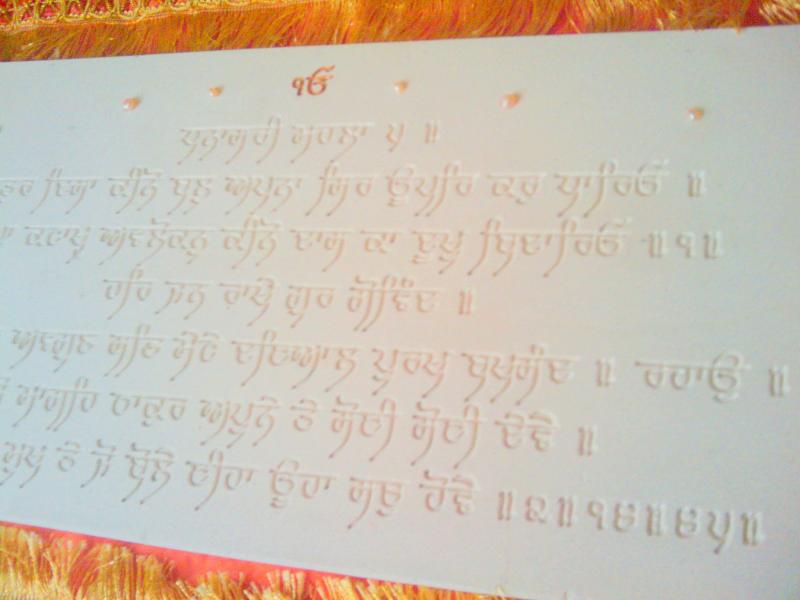 ੴ
ਧਨਾਸਰੀ ਮਹਲਾ ੫ ॥
ਦਿਸਾ ਕੀਨੋ ਬਲੁ ਅਪਨਾ ਸਿਰ ਊਪਰਿ ਕਰੁ ਧਾਰਿਓ ॥
ਕਟਾਖ੍ਯ੍ਯ ਅਵਲੋਕਨੁ ਕੀਨੋ ਦਾਸ ਕਾ ਦੂਖੁ ਬਿਦਾਰਿਓ ॥੧॥
ਹਰਿ ਜਨ ਰਾਖੇ ਗੁਰ ਗੋਵਿੰਦ ॥
ਅਵਗੁਣ ਸਭਿ ਮੇਟੇ ਦਇਆਲ ਪੁਰਖ ਬਖਸੰਦ ॥ ਰਹਾਉ ॥
ਮਾਗਹਿ ਠਾਕੁਰ ਅਪੁਨੇ ਤੇ ਸੋਈ ਸੋਈ ਦੇਵੈ ॥
ਮੁਖ ਤੇ ਜੋ ਬੋਲੈ ਈਹਾ ਊਹਾ ਸਚੁ ਹੋਵੈ ॥੨॥੧੪॥੪੫॥